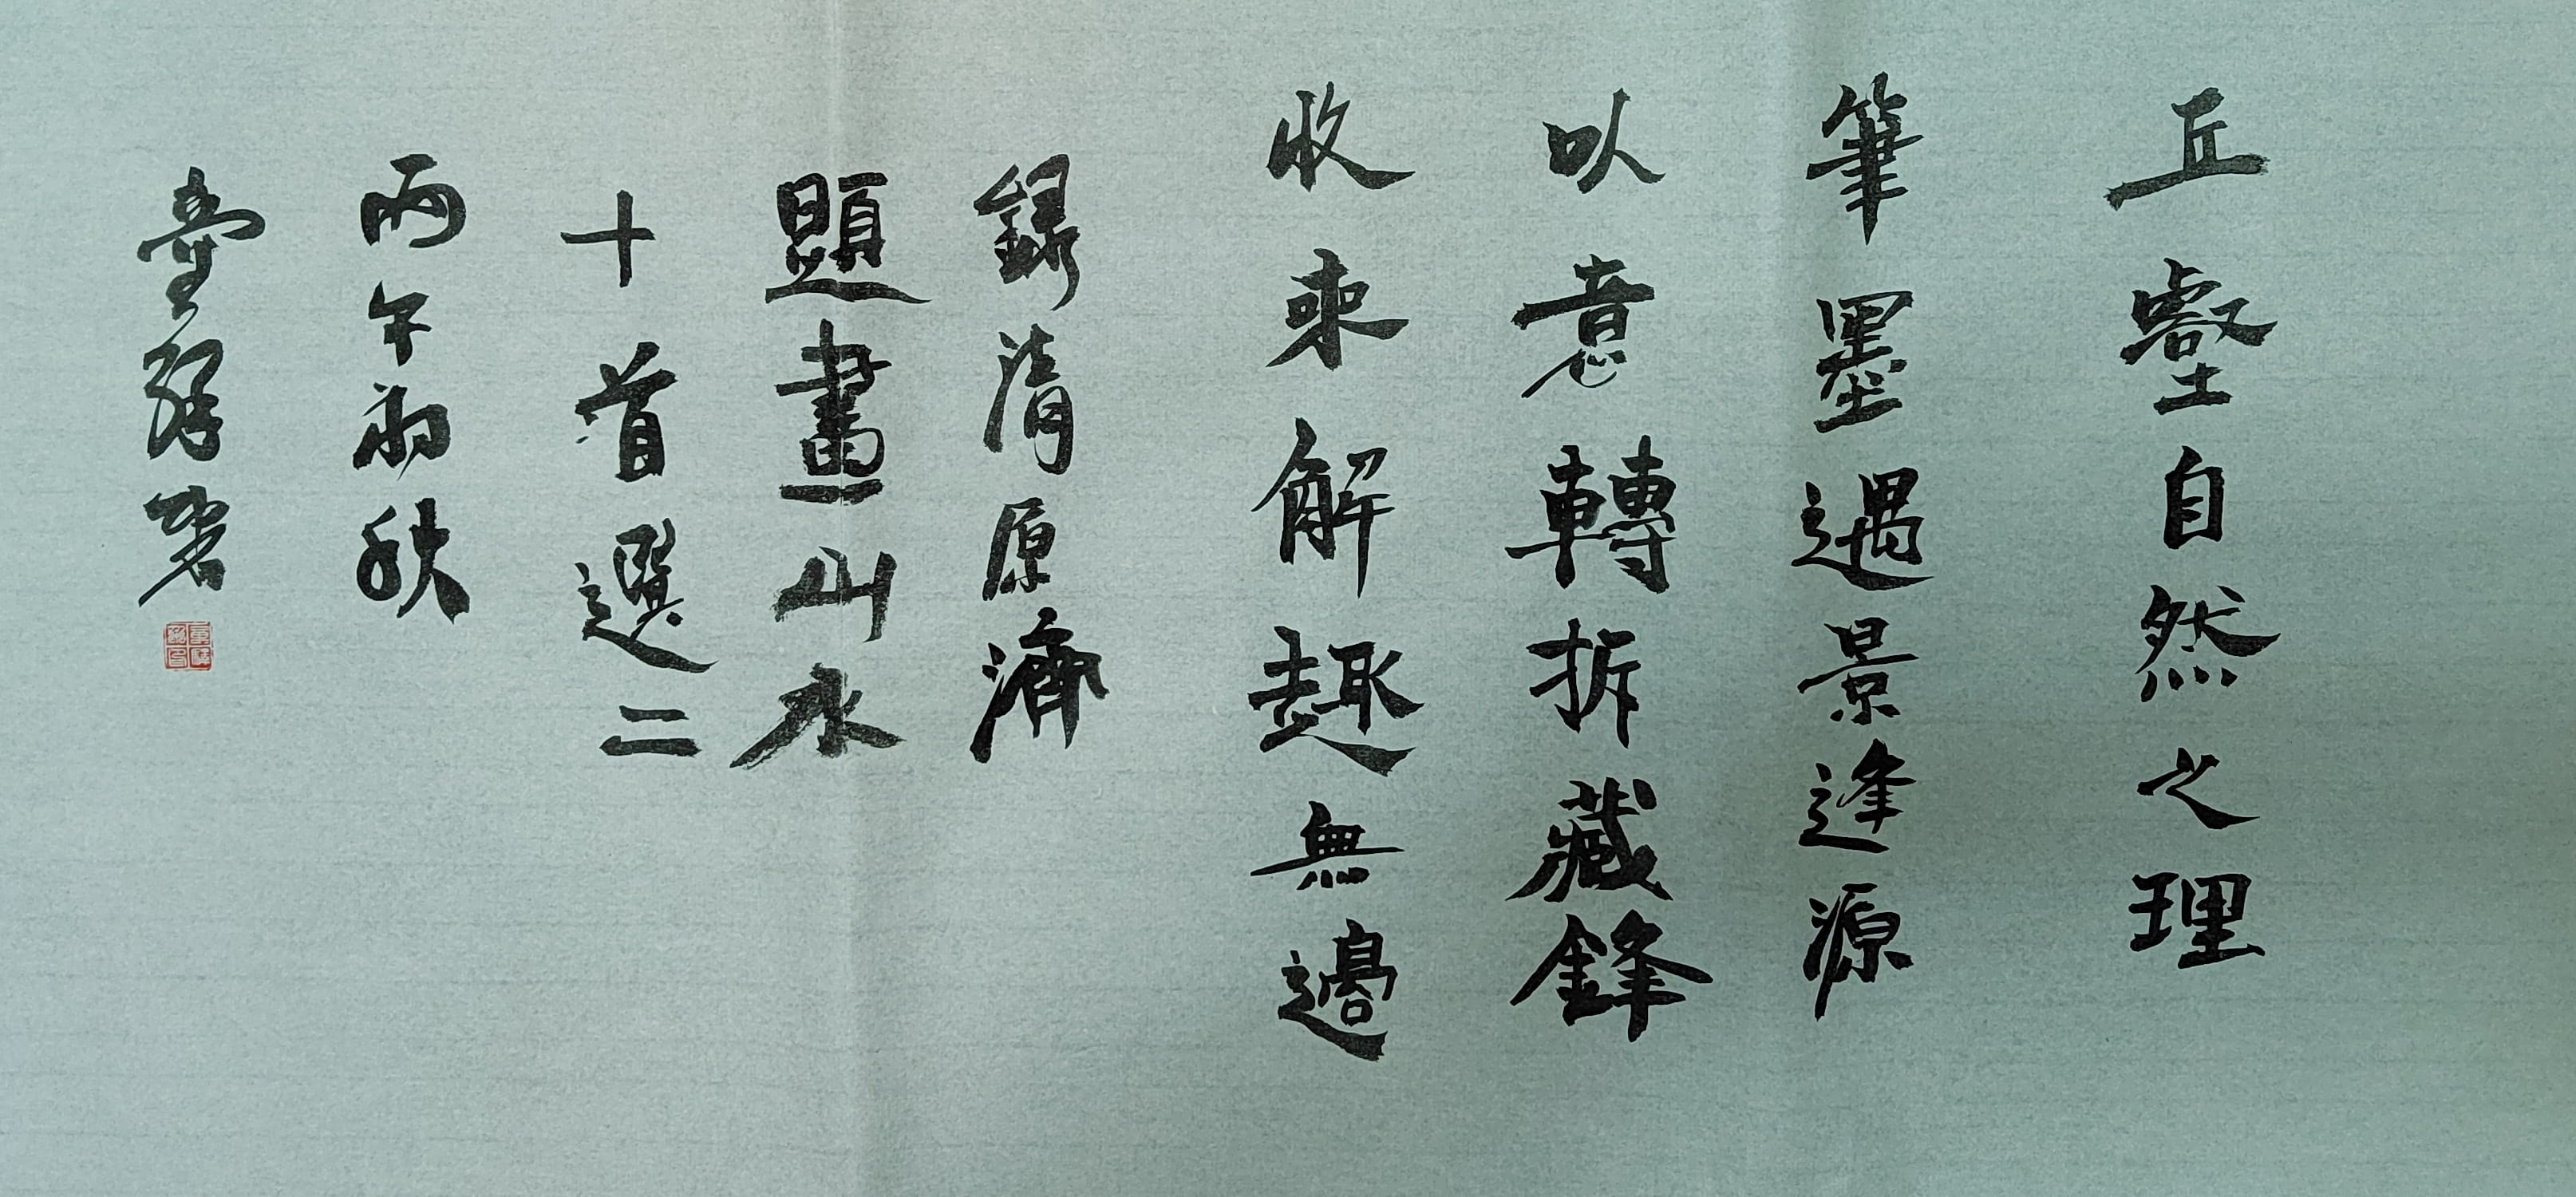 丘壑自然之理
筆墨遇景逢源
以意轉折藏鋒
收來解趣無邊
錄清原濟
題畫山水
十首選二
丙午初秋